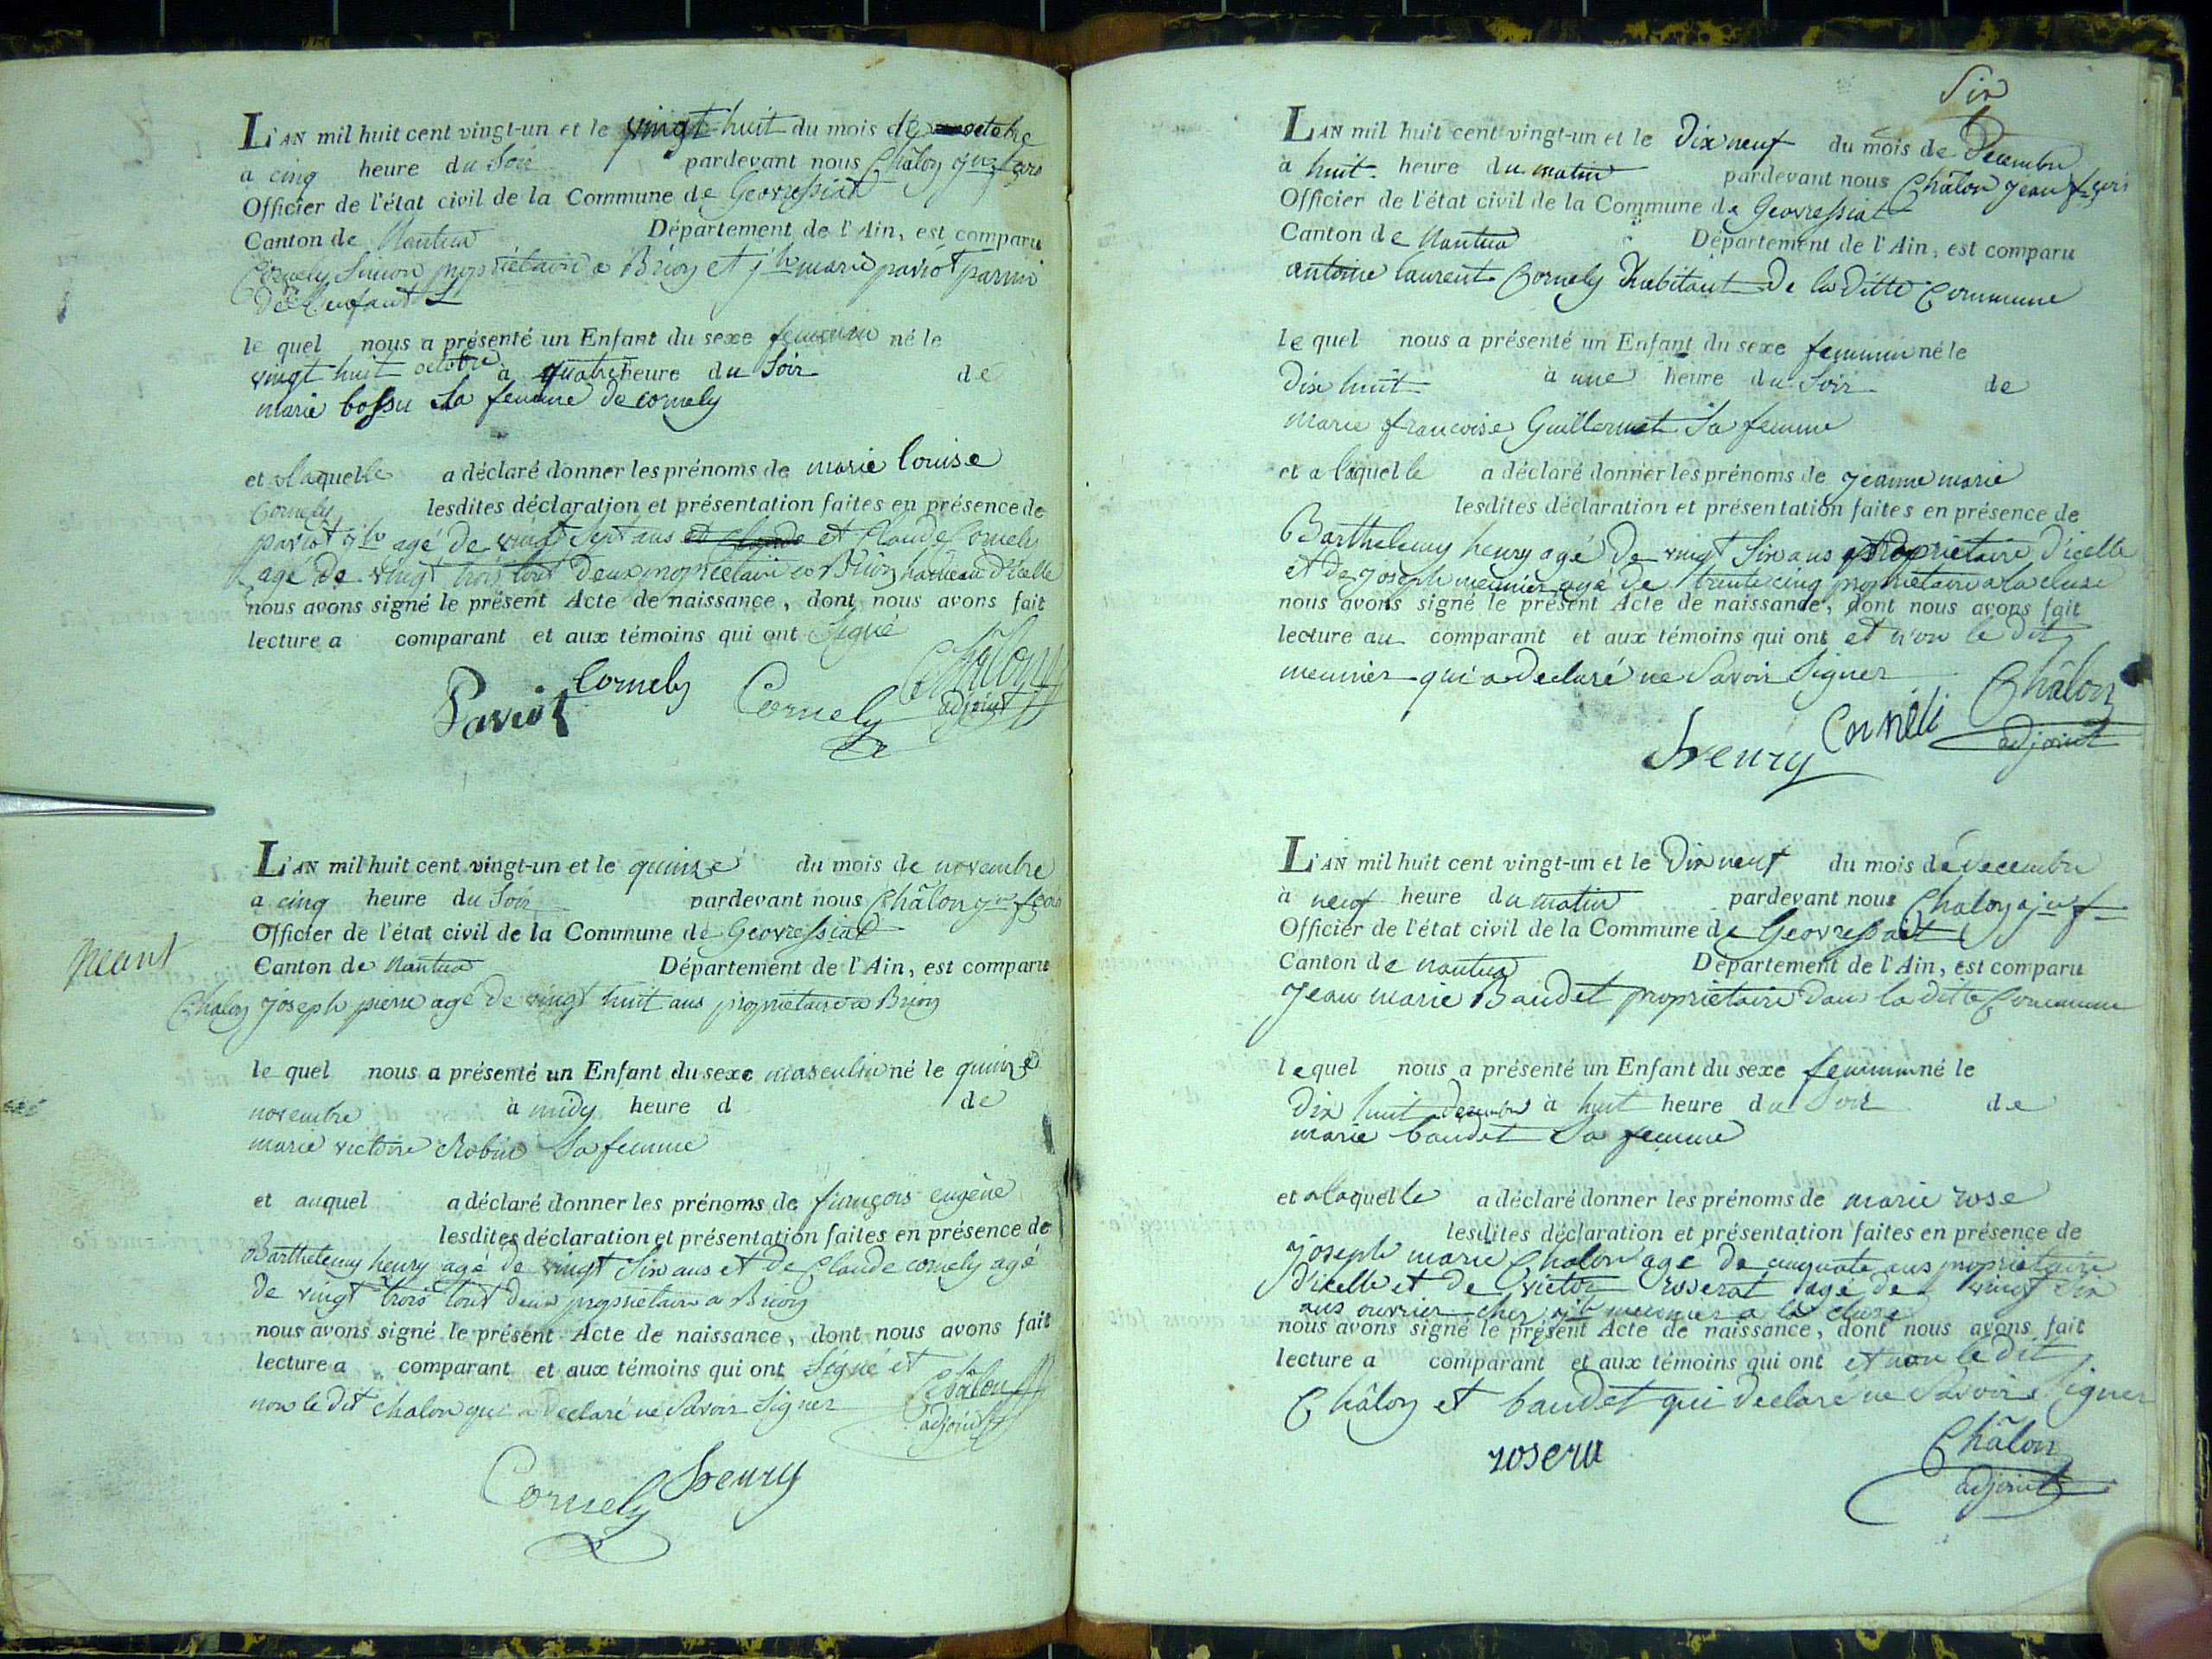 L'AN mil huit cent vingt-un et le vingt-huit du mois de octobre
a cinq heure du Soir pardevant nous Châlon jn fçois
Officier de l'état civil de la Commune de Geovressiat
Canton de Nantua Département de l'Ain, est comparu
Cornely Simon propriétaire a Brion et jh marie paviot parrin
de l'enfant
le quel nous a présenté un Enfant du sexe feminin né le
vingt huit octobre à quatre heure du Soir de
marie bossu Sa femme de cornely
et a laquelle a déclaré donner les prénoms de marie louise
Cornely lesdites déclaration et présentation faites en présence de
paviot jh agé de vingt Sept ans et Claude Cornely
agé de vingt trois tout deux proprietaire a Brion hameau d'icelle
nous avons signé le présent Acte de naissance, dont nous avons fait
lecture a comparant et aux témoins qui ont Signé
Paviot Cornely Cornely Châlon
adjoint
L'AN mil huit cent vingt-un et le quinze du mois de novembre
a cinq heure du Soir pardevant nous Châlon jn fçois
Officier de l'état civil de la Commune de Geovressiat
neant
Canton de Nantua Département de l'Ain, est comparu
Chalon joseph pierre agé de vingt huit ans propriétaire a Brion
le quel nous a présenté un Enfant du sexe masculin né le quinze
novembre à midy heure d de
marie victoire Robin Sa femme
et auquel a déclaré donner les prénoms de françois eugène
lesdites déclaration et présentation faites en présence de
Barthelemy henry agé de vingt Six ans et de Claude cornely agé
de vingt trois tout deux proprietaire a Brion
nous avons signé le présent Acte de naissance, dont nous avons fait
lecture a comparant et aux témoins qui ont Signé et
non le dit chalon qui a declaré ne Savoir Signer
Châlon
adjoint
Cornely henry
Six
L'AN mil huit cent vingt-un et le Dix neuf du mois de Decembre
à huit heure du matin pardevant nous Châlon jean fçois
Officier de l'état civil de la Commune de Geovressiat
Canton de Nantua Département de l'Ain, est comparu
antoine laurent Cornely habitant De la ditte Commune
le quel nous a présenté un Enfant du sexe feminin né le
Dix huit à une heure du Soir de
marie francoise Guillermet Sa femme
et a laquelle a déclaré donner les prénoms de jeanne marie
lesdites déclaration et présentation faites en présence de
Barthelemy henry agé De vingt Six ans proprietaire D'icelle
et de joseph meunier agé de trente cinq proprietaire a la cluse
nous avons signé le présent Acte de naissance, dont nous avons fait
lecture au comparant et aux témoins qui ont et n'on le dit
meunier qui a declaré ne Savoir Signer
Châlon
henry Cornéli adjoint
L'AN mil huit cent vingt-un et le Dix neuf du mois de decembre
à neuf heure du matin pardevant nous Chalon jn f
Officier de l'état civil de la Commune de Geovressiat
Canton de nantua Département de l'Ain, est comparu
jean marie Baudet proprietaire Dans la ditte Commune
le quel nous a présenté un Enfant du sexe feminin né le
Dix huit decembre à huit heure du Soir de
marie baudet Sa femme
et a laquelle a déclaré donner les prénoms de marie rose
lesdites déclaration et présentation faites en présence de
joseph marie Chalon agé de cinquate ans proprietaire
D'icelle et de victor roserat agé de vingt Six
ans ouvrier chez jh meunier a la cluse
nous avons signé le présent Acte de naissance, dont nous avons fait
lecture a comparant et aux témoins qui ont et non le dit
Châlon et baudet qui declare ne Savoir Signer
rosera Châlon
adjoint